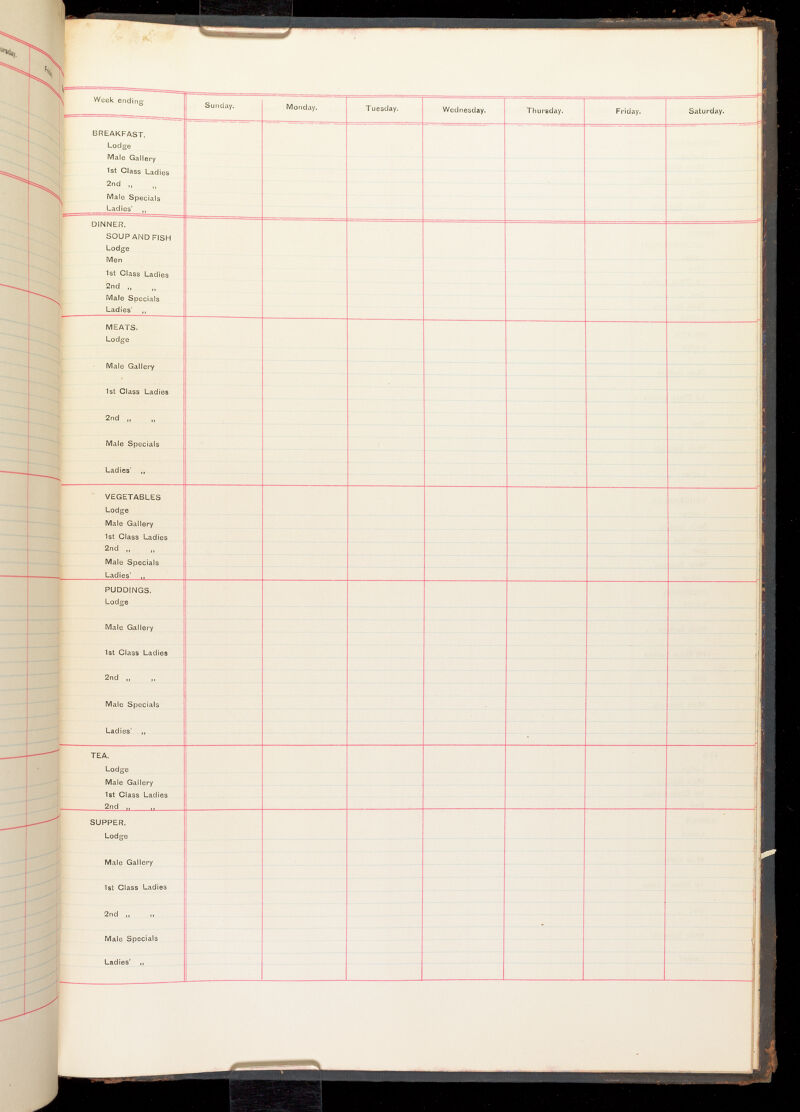 Week ending Sunday. Monday. Tuesday. Wednesday. Thursday. Friday. Saturday.
BREAKFAST.
Lodge
Male Gallery
1st Class Ladies
2nd ,, ,,
Male Specials
Ladies' ,,
DINNER.
SOUP AND FISH
Lodge
Men
1st Class Ladies
2nd ,, ,,
Male Specials
Ladies' ,,
MEATS.
Lodge
Male Gallery
1st Class Ladies
2nd ,, ,,
Male Specials
Ladies' ,,
VEGETABLES
Lodge
Male Gallery
1st Class Ladies
2nd ,, ,,
Male Specials
Ladies' ,,
PUDDINGS.
Lodge
Male Gallery
1st Class Ladies
2nd ,, ,,
Male Specials
Ladies' ,,
TEA.
Lodge
Male Gallery
1st Class Ladies
2nd ,, ,,
SUPPER.
Lodge
Male Gallery
1st Class Ladies
2nd ,, ,,
Male Specials
Ladies' ,,